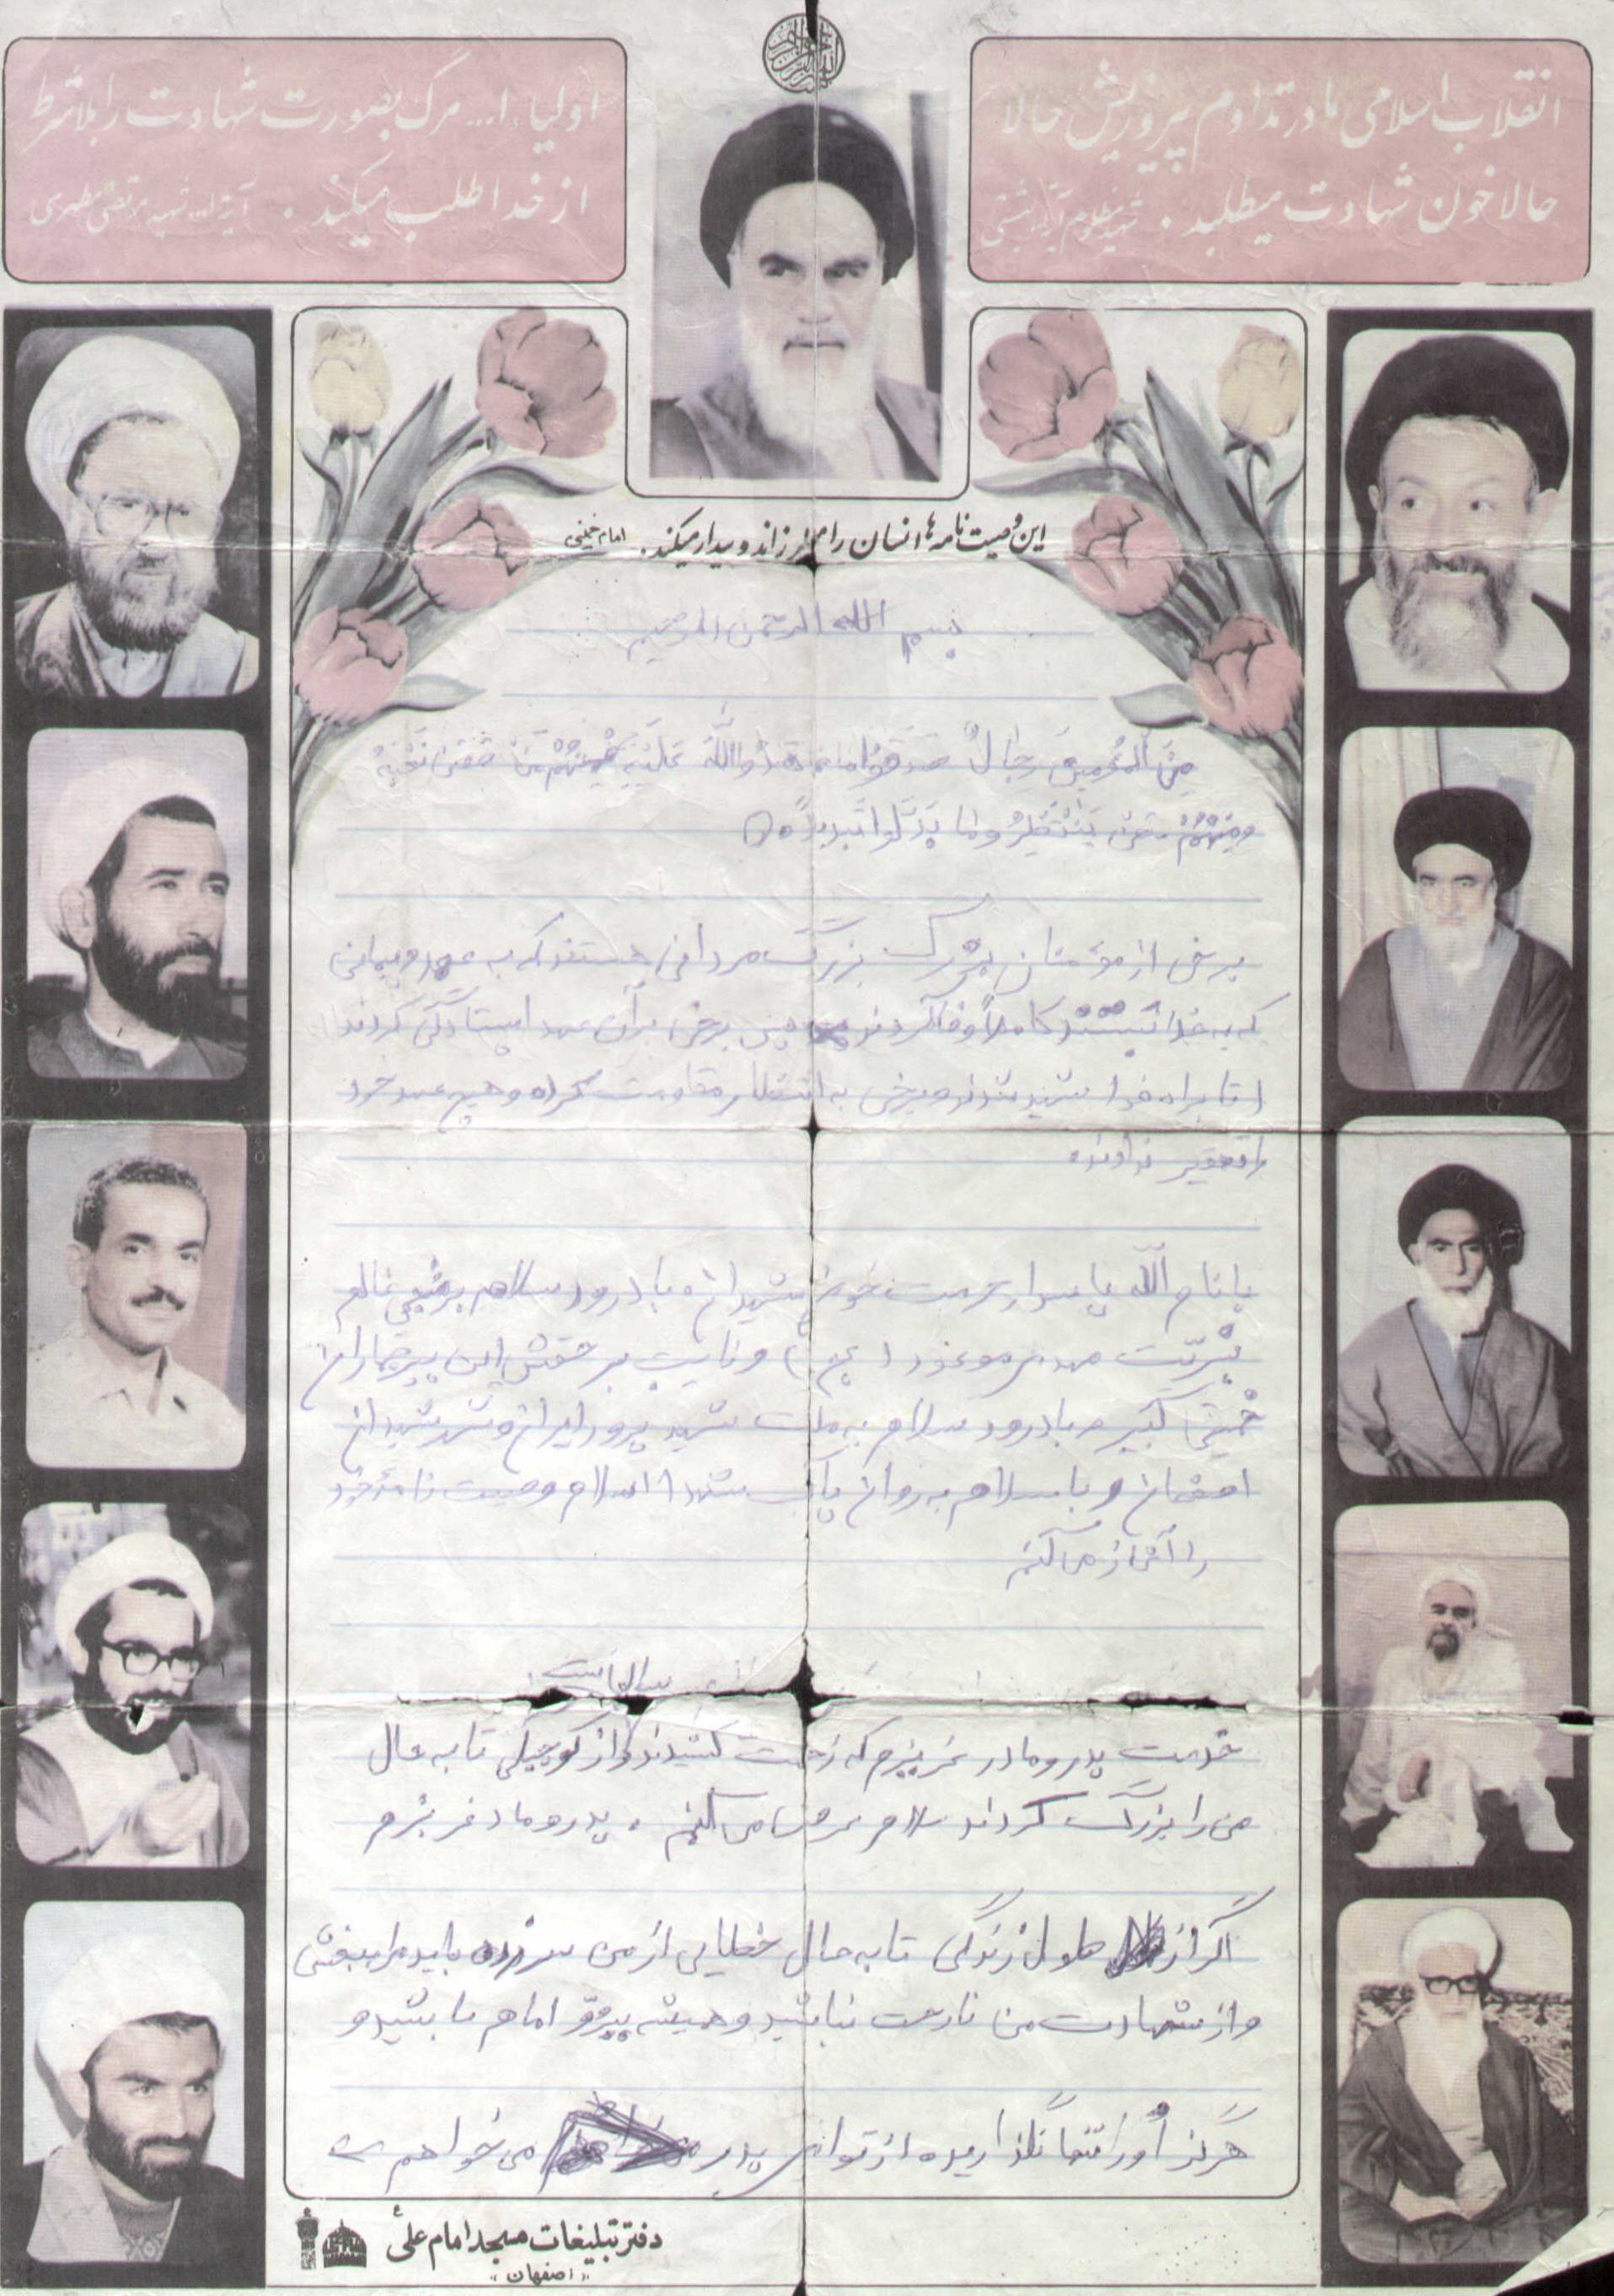 انقلاب اسلامی ما در تداوم پیروزیش حالا
حالا خون شهادت میطلبد. شهید مظلوم آیة... بهشتی
اولیاء ا... مرگ بصورت شهادت را بلاشرط
از خدا طلب میکند. آیة ا... شهید مرتضی مطهری
این وصیت نامه ها انسان را میلرزاند و بیدار میکند. امام خمینی
بسم الله الرحمن الرحیم
مِنَ المُؤمِنینَ رِجالٌ صَدَقوُا ما عاهَدُوااللَّهَ عَلَیْهِ فَمِنْهُمْ مَنْ قَضی نَحْبَهُ
وَمِنْهُمْ مَنْ یَنْتَظِرُ وما بَدَّلوا تَبدیلاً
برخی از مؤمنان بزرگ مردانی هستند که به عهد و پیمانی
که به خدا بستند کاملاً وفا کردند پس برخی برآن عهد ایستادگی کردند
تا براه خدا شهید شدند و برخی به انتظار مقاومت کرده و هیچ عهد خود
را تغییر ندادند
با نام اللّه پاسدار حرمت خون شهیدان با درود و سلام بر منجی عالم
بشریّت مهدی موعود (عج) و نایب بر حقش این پیر جماران
خمینی کبیر و با درود و سلام به ملت شهید پرور ایران و شهر شهیدان
اصفهان و با سلام به روان پاک شهدا اسلام وصیت نامهٔ خود
را آغاز می کنم
خدمت پدر و مادر عزیزم که زحمت کشیدند و از کوچیکی تا به حال
من را بزرگ کردند سلام عرض می کنم . پدر و مادر عزیزم
اگر از طول زندگی تا به حال خطایی از من سر زده باید مرا ببخشی
و از شهادت من ناراحت نباشید و همیشه پیرو امام ما بشید و
هرگز او را تنها نگذارید از تو ای پدر می خواهم
دفتر تبلیغات مسجد امام علیؑ
«اصفهان»